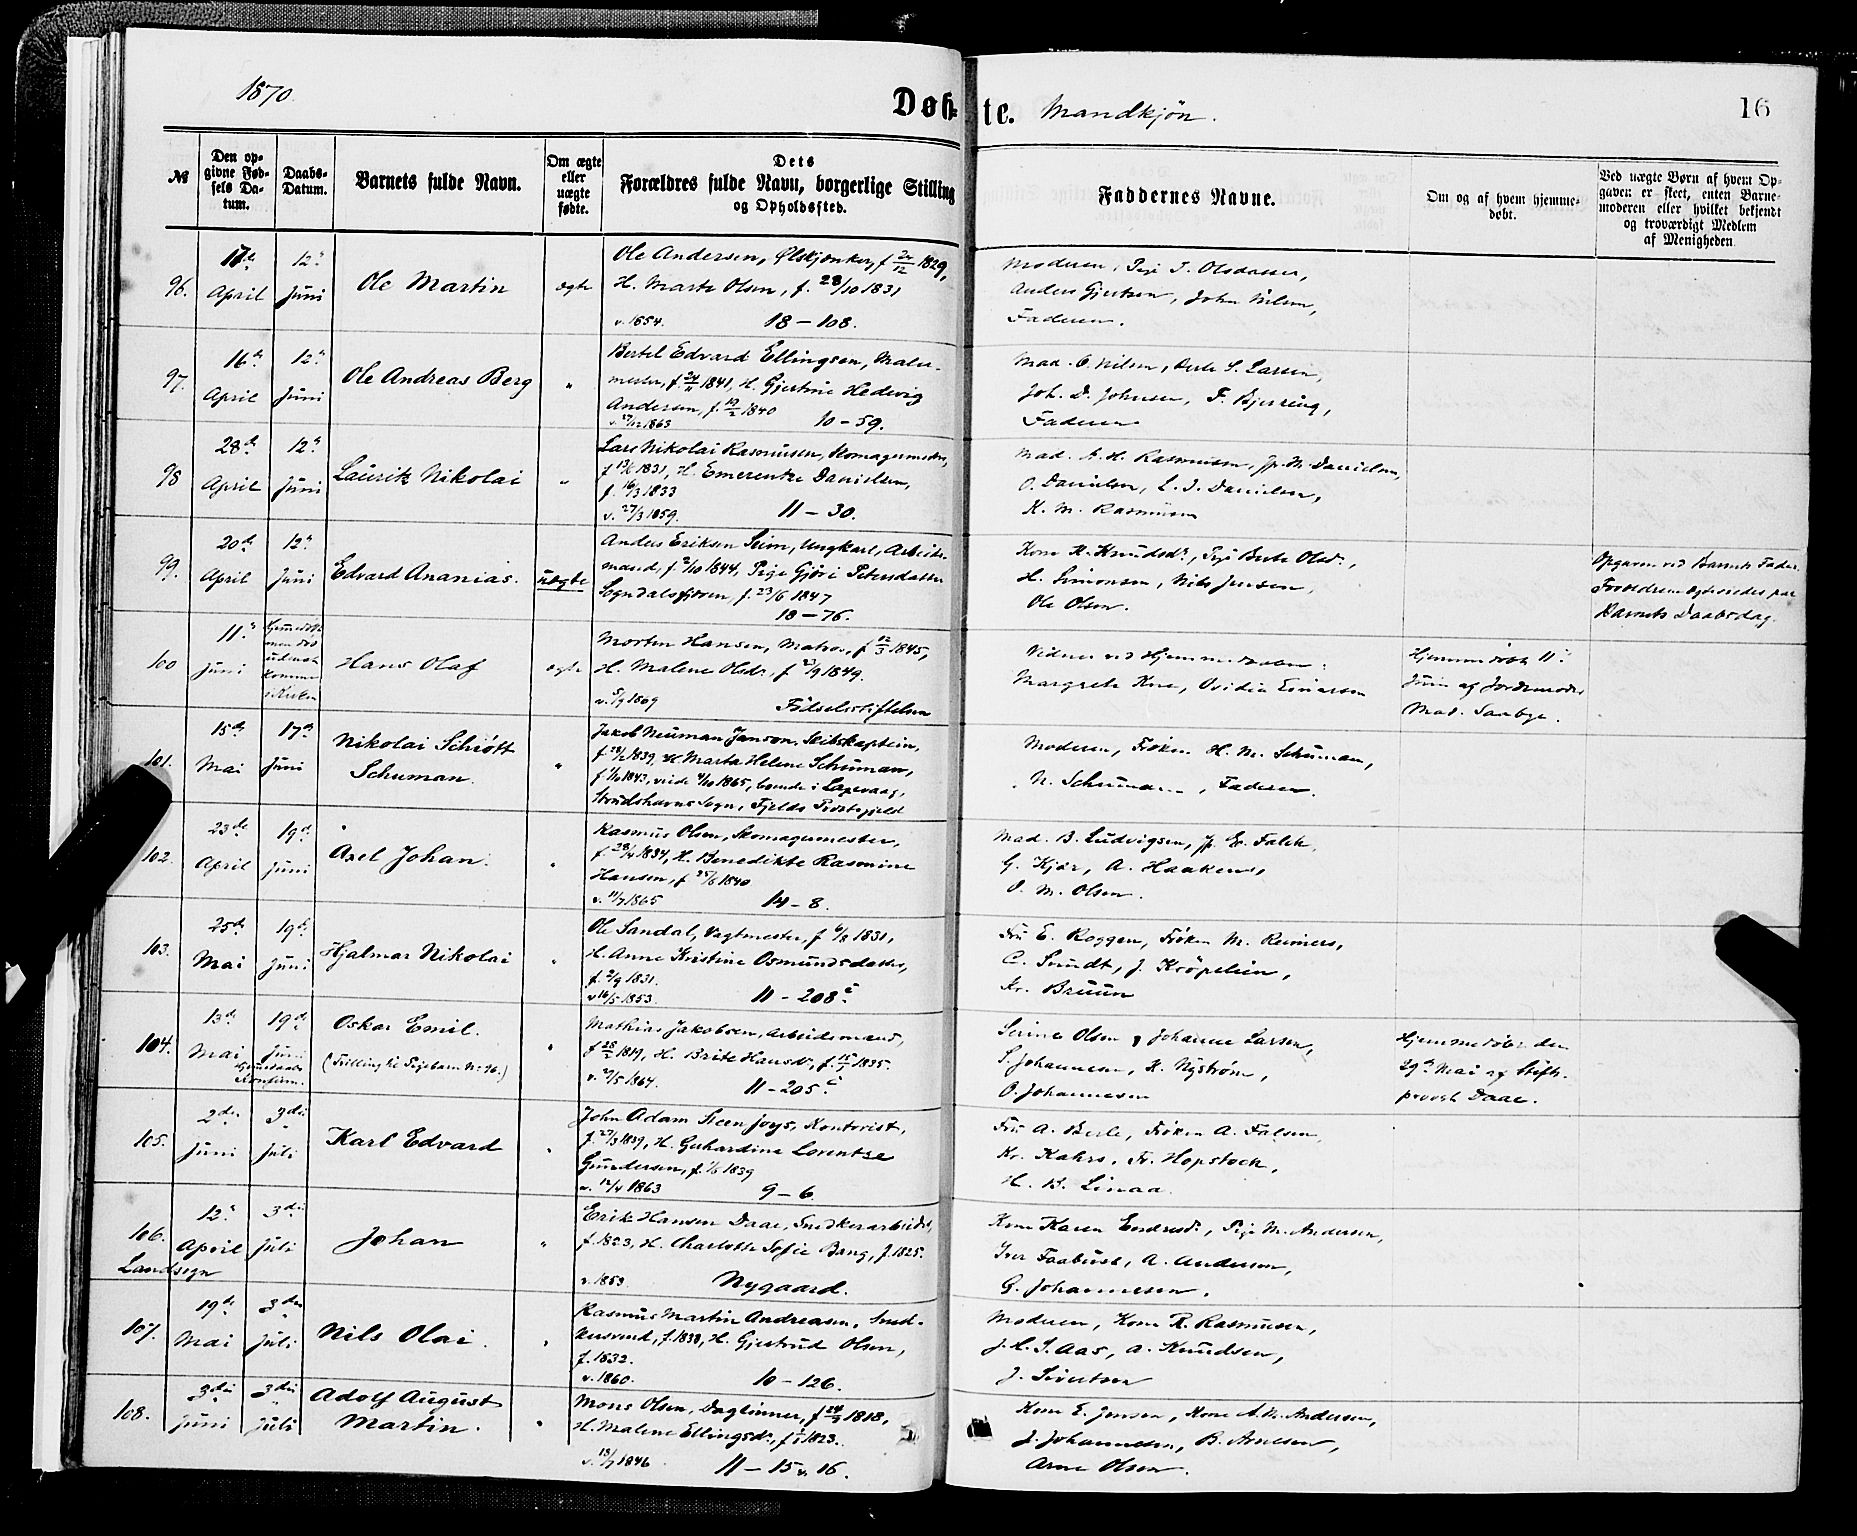 1870
Døb-te. Mandkjøn.
16
№
Den opgivne Fødsels Datum.
Daabs-Datum.
Barnets fulde Navn.
Om ægte eller uægte fødte.
Dets Forældres fulde Navn, borgerlige Stilling og Opholdssted.
Faddernes Navne.
Om og af hvem hjemmedøbt.
Ved uægte Børn af hvem Opgaven er skeet, enten Barnemoderen eller hvilket bekjendt og troværdigt Medlem af Menigheden.
96.
April
12te Juni
Ole Martin
ægte
Ole Andersen, Ølskjænker, f. 24/12 1829,
H. Marte Olsen, f. 28/10 1831
v. 1854. 18 – 108.
Moderen, Pige I. Olsdatter,
Anders Gjertsen, John Nilsen,
Faderen.
97.
16de April
12te Juni
Ole Andreas Berg
"
Bertel Edvard Ellingsen, Maler-
mester, f. 24/11 1841, H. Gjertine Hedevig
Andersen, f. 19/2 1840
1863 10 – 59.
Mad. O. Nilsen, Larsen,
Joh. D. Johnsen, F. Bjerring,
Faderen
98
28de April
12te Juni
Lauritz Nikolai
"
Lars Nikolai Rasmussen, Skomagermester,
1831, H. Emerentze Danielsen,
f. 16/3 1833
v. 27/3 1859. 11 – 30.
Mad. A. H. Rasmussen, Jp. M. Danielsen,
O. Danielsen, L. J. Danielsen,
K. M. Rasmussen
99.
20de April
12te Juni
Edvard Ananias.
uægte
Anders Eriksen Seim, Ungkarl, Arbeids-
mand, 1844, Pige Gjøri Petersdatter
Sogndalsfjøren, f. 23/6 1847
18 – 76.
Kone K. Knudsdr., Pige Berte Olsdr.,
H. Simonsen, Nils Jensen,
Ole Olsen.
Opgaven ved Barnets Fader.
Forældrene ægteviedes paa
Barnets Daabsdag.
100
11te Juni
Hjemmedøbt men død uden at komme i Kirken
Hans Olaf
ægte
Morten Hansen, Matros, f. 12/3 1845,
H. Malene Olsdr., 1849.
1869 Fødselsstiftelsen
Vidner ved Hjemmedaaben:
Margrete Knee, Ovidia Einarsen
Hjemmedøbt 11te
Juni af Jordemoder
Mad. Saabye.
101.
15de Mai
17de Juni
Nikolai Schrøtt
Schuman.
"
Jakob Neuman Janson, Skibskaptein,
1839, H. Marta Helene Schuman,
1843, viede 1865, boende i Laxevaag,
Strudshavns Sogn, Fjelds Præstegjeld
Moderen, Frøken H. M. Schuman,
N. Schuman, Faderen.
102.
23de April
19de Juni
Axel Johan.
"
Rasmus Olsen, Skomagermester,
f. 28/4 1834, H. Benedikte Rasmine
Hansen, f. 25/6 1840
v. 11/7 1865 14 – 8.
Mad. B. Ludvigsen, Jp. E. Falck,
G. Kjær, A. Haakens,
O. M. Olsen.
103.
25de Mai
19de Juni
Hjalmar Nikolai
"
Ole Sandal, Vagtmester, f. 6/8 1831,
H. Anne Kristine Osmundsdatter,
f. 2/9 1831.
v. 16/5 1853. 11 – 208c
Fru E. Roggen, Frøken M. Reimers,
C. Sundt, J. Krøpelien,
Kr. Bruun
104.
13de Mai
19de Juni
Hjemdaab Konfirm.
Oskar Emil.
(Tvilling til Pigebarn No. 96.)
"
Mathias Jakobsen, Arbeidsmand,
1819, H. Brite Hansdr., 1835.
1864. 11 – 205c
Serine Olsen, Johanne Larsen,
S. Johannesen, K. Nystrøm,
O. Johannesen
Hjemmedøbt den
29de Mai af Stifts-
provst Daae.
105.
2den Juni
3die Juli
Karl Edvard
"
John Adam Steen Joys, Kontorist,
f. 27/3 1839, H. Gerhardine Lorentze
Gundersen, 1839
v. 12/4 1863 9 – 6
Fru A. Berle, Frøken A. Falsen,
Kr. Kahrs, Fr. Hopstock,
H. B. Linaa.
106.
Landsogn
12te April
3die Juli
Johan
"
Erik Hansen Daae, Snedkerarbeider,
f. 1823, H. Charlotte Sofie Bang, f. 1825.
v. 1853. Nygaard.
Kone Karen Endresdr., Pige M. Andersen,
Iver Faabust, A. Andersen,
G. Johannesen.
107.
19de Mai
3die Juli
Nils Olai
"
Rasmus Martin Andreasen, Sned-
kersvend, f. 1838, H. Gjertrud Olsen,
f. 1832.
v. 1860. 10 – 126.
Moderen, Kone R. Rasmussen,
J. L. S. Aas, A. Knudsen,
J. Sivertsen
108.
3die Juni
3die Juli
Adolf August
Martin.
"
Mons Olsen, Daglønner, 1818,
H. Malene Ellingsdr., 1823.
1846 11 – 15 v. 16.
Kone E. Jensen, Kone A. M. Andersen,
J. Johannesen, B. Arnesen,
Arne Olsen.